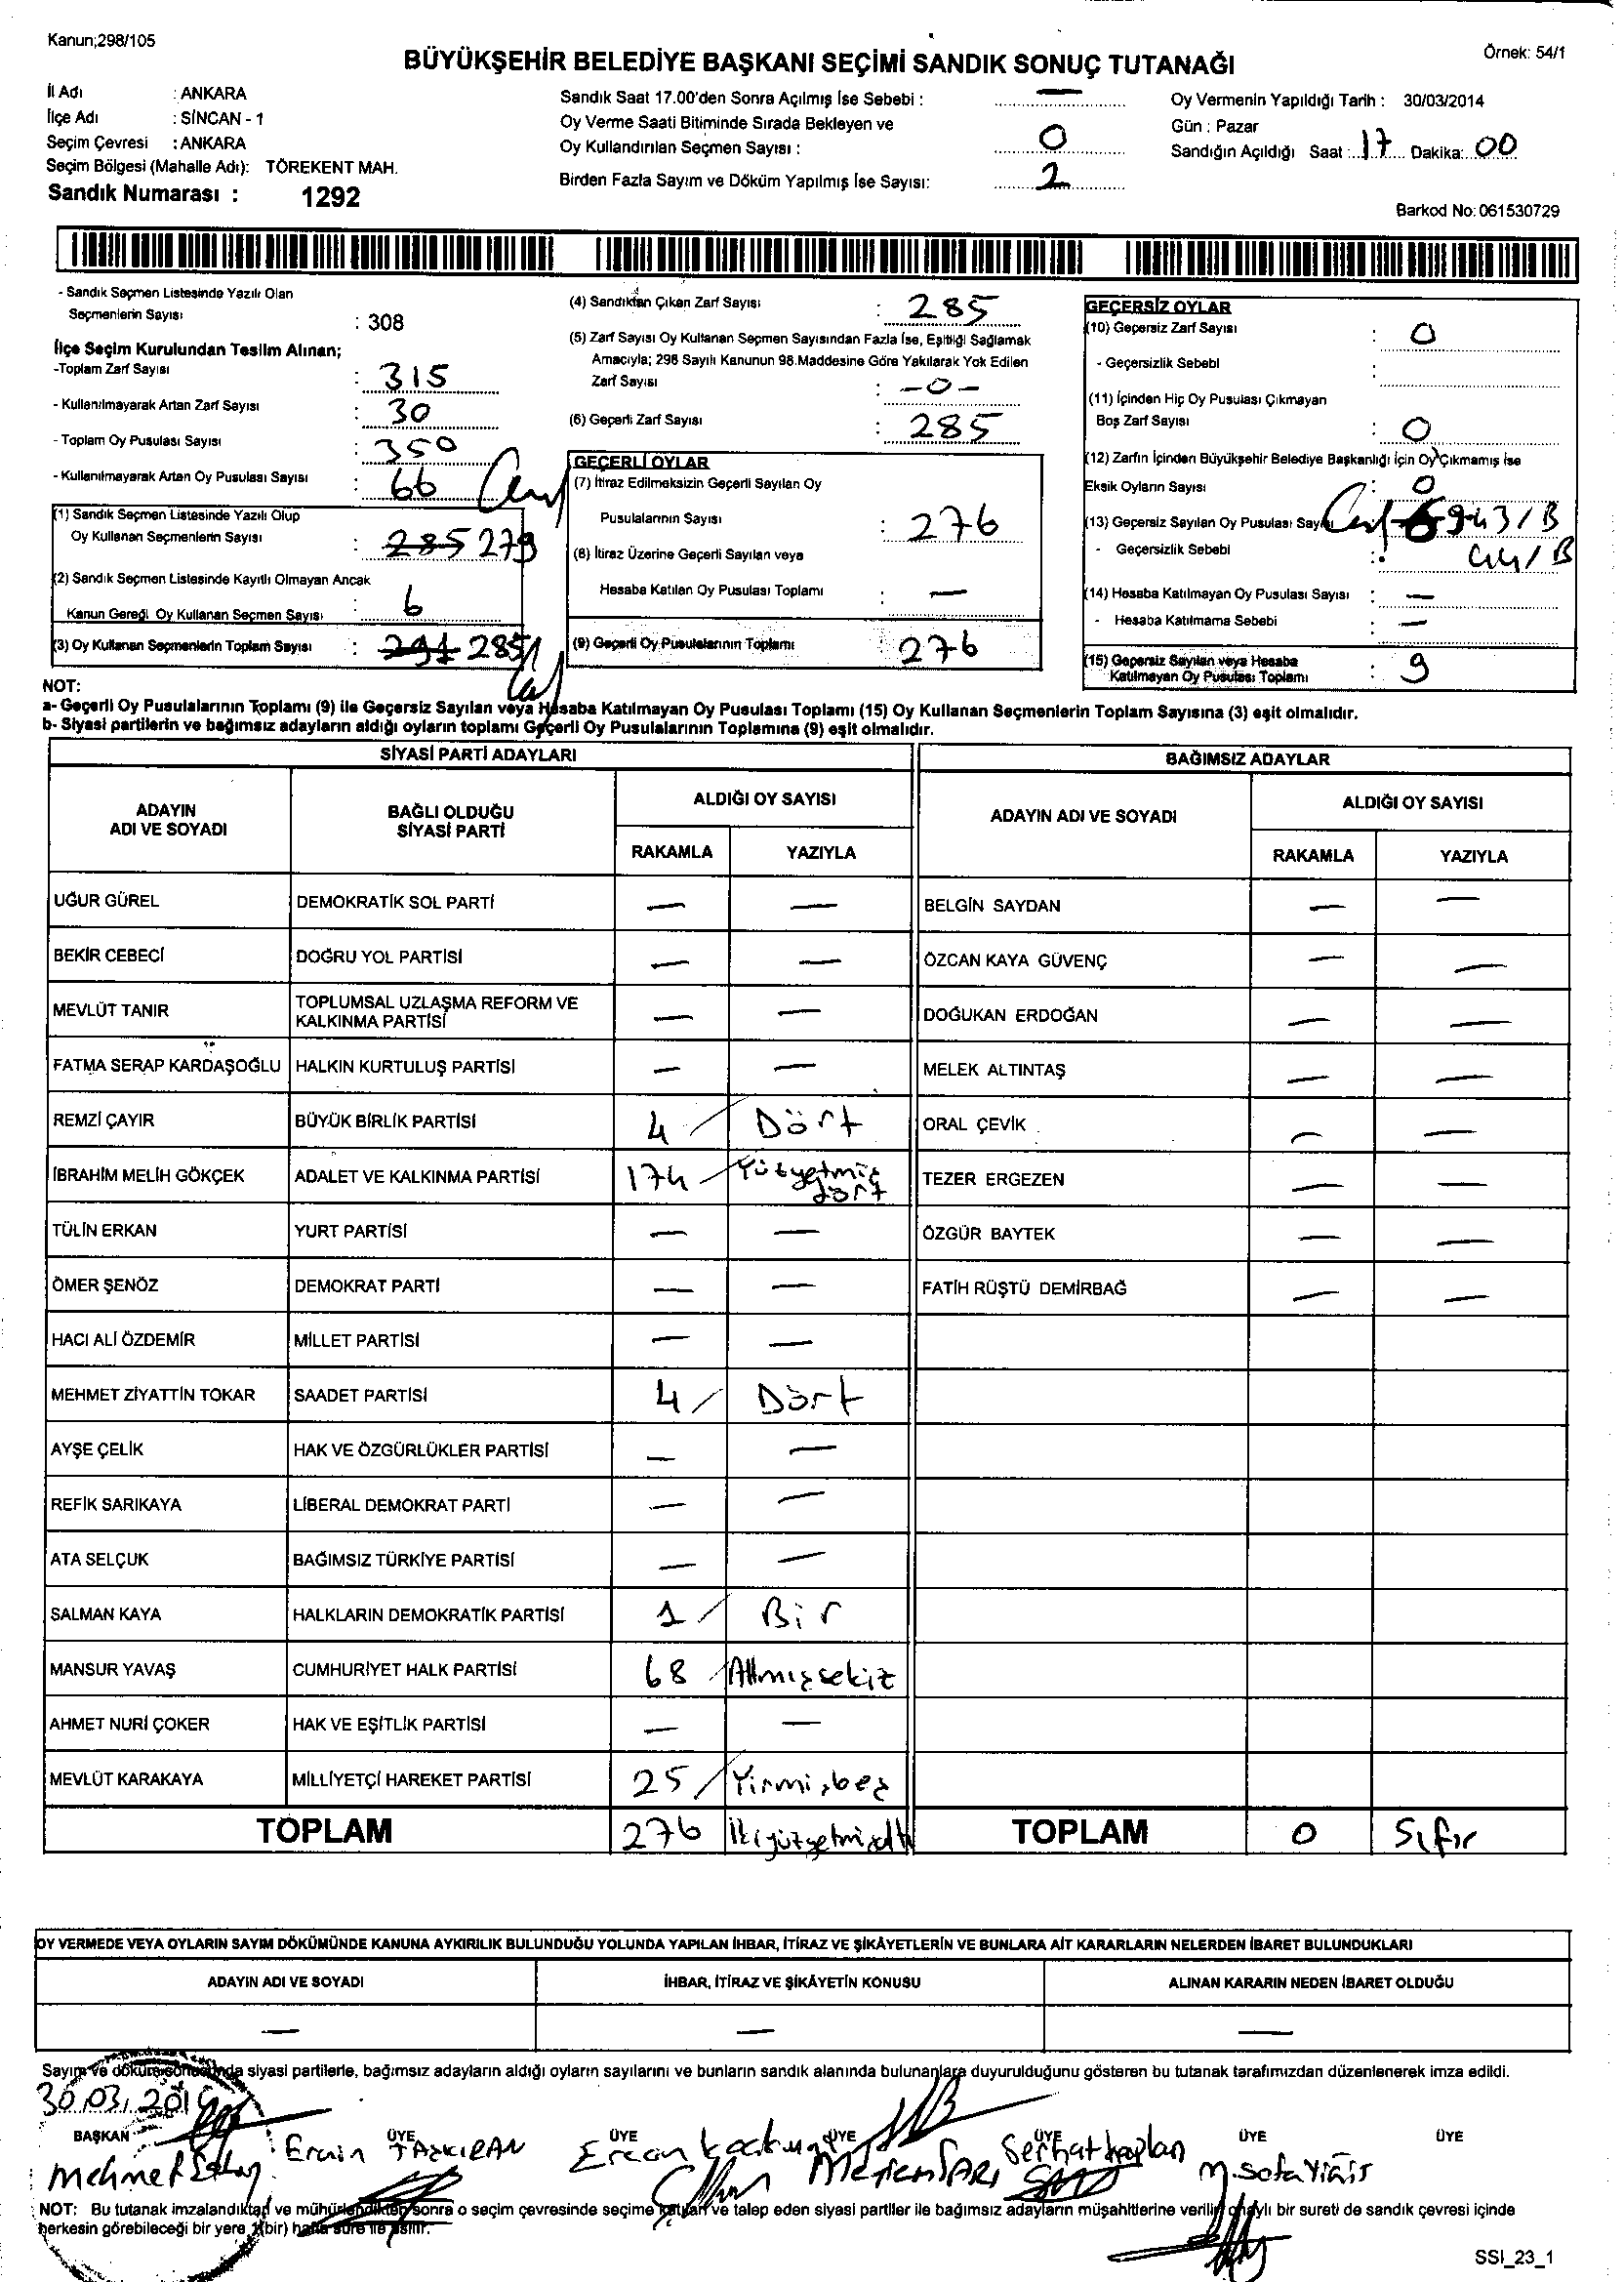 Kanun;298/105
Örnek: 54/1
BÜYÜKŞEHİR BELEDİYE BAŞKANI SEÇİMİ SANDIK SONUÇ TUTANAĞI
İl Adı : ANKARA
İlçe Adı : SİNCAN - 1
Seçim Çevresi : ANKARA
Seçim Bölgesi (Mahalle Adı): TÖREKENT MAH.
Sandık Numarası : 1292
Sandık Saat 17.00'den Sonra Açılmış İse Sebebi : —
Oy Verme Saati Bitiminde Sırada Bekleyen ve
Oy Kullandırılan Seçmen Sayısı : 0
Birden Fazla Sayım ve Döküm Yapılmış İse Sayısı: 2
Oy Vermenin Yapıldığı Tarih : 30/03/2014
Gün : Pazar
Sandığın Açıldığı Saat : 17 Dakika: 00
Barkod No: 061530729
- Sandık Seçmen Listesinde Yazılı Olan
Seçmenlerin Sayısı : 308
İlçe Seçim Kurulundan Teslim Alınan;
-Toplam Zarf Sayısı : 315
- Kullanılmayarak Artan Zarf Sayısı : 30
- Toplam Oy Pusulası Sayısı : 350
- Kullanılmayarak Artan Oy Pusulası Sayısı : 66
(1) Sandık Seçmen Listesinde Yazılı Olup
Oy Kullanan Seçmenlerin Sayısı : 285 279
(2) Sandık Seçmen Listesinde Kayıtlı Olmayan Ancak
Kanun Gereği Oy Kullanan Seçmen Sayısı : 6
(3) Oy Kullanan Seçmenlerin Toplam Sayısı : 291 285
(4) Sandıktan Çıkan Zarf Sayısı : 285
(5) Zarf Sayısı Oy Kullanan Seçmen Sayısından Fazla İse, Eşitliği Sağlamak
Amacıyla; 298 Sayılı Kanunun 98.Maddesine Göre Yakılarak Yok Edilen
Zarf Sayısı : -0-
(6) Geçerli Zarf Sayısı : 285
GEÇERLİ OYLAR
(7) İtiraz Edilmeksizin Geçerli Sayılan Oy
Pusulalarının Sayısı : 276
(8) İtiraz Üzerine Geçerli Sayılan veya
Hesaba Katılan Oy Pusulası Toplamı : —
(9) Geçerli Oy Pusulalarının Toplamı : 276
GEÇERSİZ OYLAR
(10) Geçersiz Zarf Sayısı : 0
- Geçersizlik Sebebi :
(11) İçinden Hiç Oy Pusulası Çıkmayan
Boş Zarf Sayısı : 0
(12) Zarfın İçinden Büyükşehir Belediye Başkanlığı İçin Oy Çıkmamış İse
Eksik Oyların Sayısı : 0
(13) Geçersiz Sayılan Oy Pusulası Sayısı 9 43/B
- Geçersizlik Sebebi : 44/B
(14) Hesaba Katılmayan Oy Pusulası Sayısı : —
- Hesaba Katılmama Sebebi : —
(15) Geçersiz Sayılan veya Hesaba
Katılmayan Oy Pusulası Toplamı : 9
NOT:
a- Geçerli Oy Pusulalarının Toplamı (9) ile Geçersiz Sayılan veya Hesaba Katılmayan Oy Pusulası Toplamı (15) Oy Kullanan Seçmenlerin Toplam Sayısına (3) eşit olmalıdır.
b- Siyasi partilerin ve bağımsız adayların aldığı oyların toplamı Geçerli Oy Pusulalarının Toplamına (9) eşit olmalıdır.
SİYASİ PARTİ ADAYLARI
ADAYIN ADI VE SOYADI BAĞLI OLDUĞU SİYASİ PARTİ ALDIĞI OY SAYISI
RAKAMLA YAZIYLA
UĞUR GÜREL DEMOKRATİK SOL PARTİ — —
BEKİR CEBECİ DOĞRU YOL PARTİSİ — —
MEVLÜT TANIR TOPLUMSAL UZLAŞMA REFORM VE KALKINMA PARTİSİ — —
FATMA SERAP KARDAŞOĞLU HALKIN KURTULUŞ PARTİSİ — —
REMZİ ÇAYIR BÜYÜK BİRLİK PARTİSİ 4 / Dört
İBRAHİM MELİH GÖKÇEK ADALET VE KALKINMA PARTİSİ 174 / Yüzyetmiş dört
TÜLİN ERKAN YURT PARTİSİ — —
ÖMER ŞENÖZ DEMOKRAT PARTİ — —
HACI ALİ ÖZDEMİR MİLLET PARTİSİ — —
MEHMET ZİYATTİN TOKAR SAADET PARTİSİ 4 / Dört
AYŞE ÇELİK HAK VE ÖZGÜRLÜKLER PARTİSİ — —
REFİK SARIKAYA LİBERAL DEMOKRAT PARTİ — —
ATA SELÇUK BAĞIMSIZ TÜRKİYE PARTİSİ — —
SALMAN KAYA HALKLARIN DEMOKRATİK PARTİSİ 1 / Bir
MANSUR YAVAŞ CUMHURİYET HALK PARTİSİ 68 / Altmışsekiz
AHMET NURİ ÇOKER HAK VE EŞİTLİK PARTİSİ — —
MEVLÜT KARAKAYA MİLLİYETÇİ HAREKET PARTİSİ 25 / Yirmibeş
TOPLAM 276 İkiyüzyetmişaltı
BAĞIMSIZ ADAYLAR
ADAYIN ADI VE SOYADI ALDIĞI OY SAYISI
RAKAMLA YAZIYLA
BELGİN SAYDAN — —
ÖZCAN KAYA GÜVENÇ — —
DOĞUKAN ERDOĞAN — —
MELEK ALTINTAŞ — —
ORAL ÇEVİK — —
TEZER ERGEZEN — —
ÖZGÜR BAYTEK — —
FATİH RÜŞTÜ DEMİRBAĞ — —
TOPLAM 0 Sıfır
OY VERMEDE VEYA OYLARIN SAYIM DÖKÜMÜNDE KANUNA AYKIRILIK BULUNDUĞU YOLUNDA YAPILAN İHBAR, İTİRAZ VE ŞİKÂYETLERİN VE BUNLARA AİT KARARLARIN NELERDEN İBARET BULUNDUKLARI
ADAYIN ADI VE SOYADI İHBAR, İTİRAZ VE ŞİKÂYETİN KONUSU ALINAN KARARIN NEDEN İBARET OLDUĞU
— — —
Sayım ve döküm sonucunda siyasi partilerle, bağımsız adayların aldığı oyların sayılarını ve bunların sandık alanında bulunanlara duyurulduğunu gösteren bu tutanak tarafımızdan düzenlenerek imza edildi.
30.03.2014
BAŞKAN ÜYE ÜYE ÜYE ÜYE ÜYE ÜYE
Ercan Serhat kaplan
NOT: Bu tutanak imzalandıktan ve mühürlendikten sonra o seçim çevresinde seçime katılan ve talep eden siyasi partiler ile bağımsız adayların müşahitlerine verilir, onaylı bir sureti de sandık çevresi içinde
herkesin görebileceği bir yere 1(bir) hafta süre ile asılır.
SSI_23_1